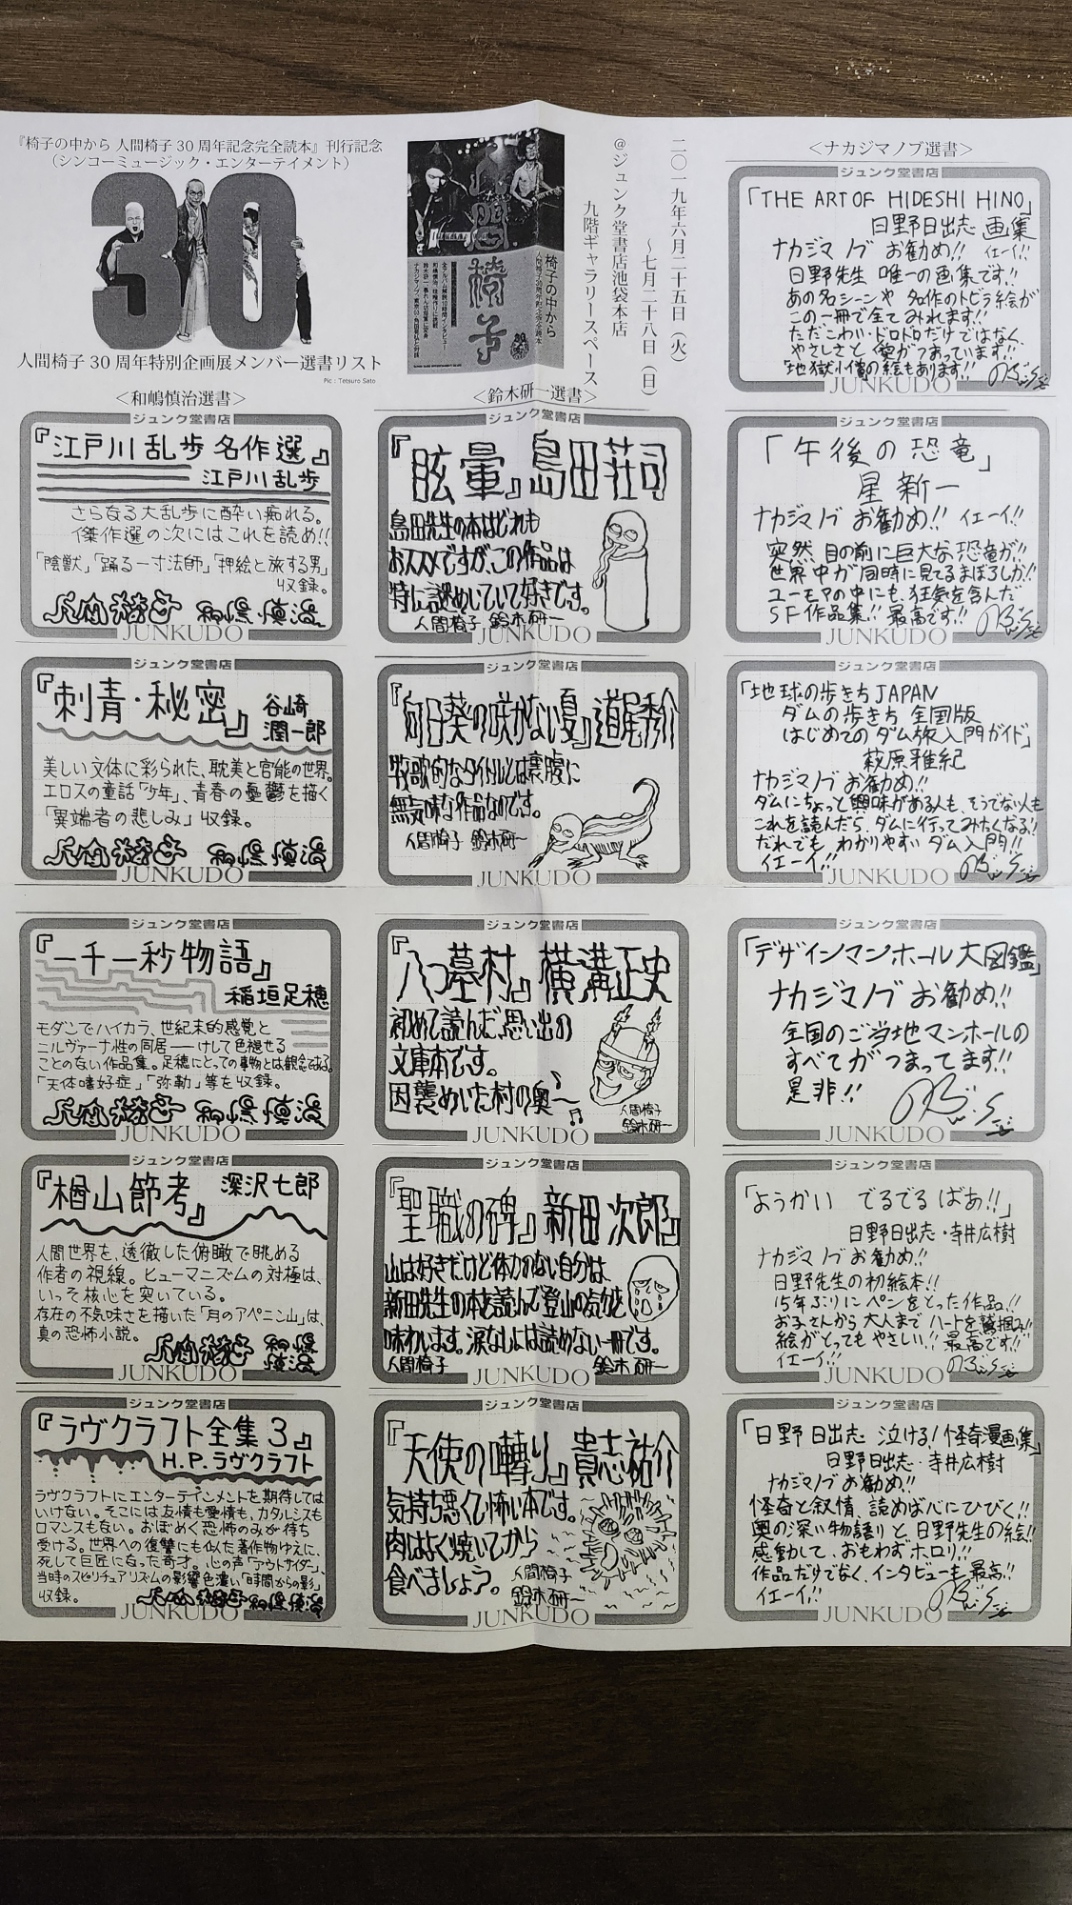 『椅子の中から 人間椅子 30 周年記念完全読本』刊行記念
（シンコーミュージック・エンターテイメント）
30
人間椅子 30 周年特別企画展メンバー選書リスト
Pic : Tetsuro Sato
椅子の中から
人間椅子30周年記念完全読本
二〇一九年六月二十五日（火）
～七月二十八日（日）
@ジュンク堂書店池袋本店
九階ギャラリースペース
＜和嶋慎治選書＞
ジュンク堂書店
『江戸川乱歩名作選』
江戸川乱歩
さらなる大乱歩に酔い痴れる。
傑作選の次にはこれを読め!!
「陰獣」「踊る一寸法師」「押絵と旅する男」
収録。
人間椅子 和嶋慎治
JUNKUDO
ジュンク堂書店
『刺青・秘密』 谷崎
潤一郎
美しい文体に彩られた、耽美と官能の世界。
エロスの童話「少年」、青春の憂鬱を描く
「異端者の悲しみ」収録。
人間椅子 和嶋慎治
JUNKUDO
ジュンク堂書店
『一千一秒物語』
稲垣足穂
モダンでハイカラ、世紀末的感覚と
ニルヴァーナ性の同居――けして色褪せる
ことのない作品集。足穂にとっての事物とは観念である。
「天体嗜好症」「弥勒」等を収録。
人間椅子 和嶋慎治
JUNKUDO
ジュンク堂書店
『楢山節考』 深沢七郎
人間世界を、透徹した俯瞰で眺める
作者の視線。ヒューマニズムの対極は、
いっそ核心を突いている。
存在の不気味さを描いた「月のアペニン山」は、
真の恐怖小説。
人間椅子 和嶋慎治
JUNKUDO
ジュンク堂書店
『ラヴクラフト全集3』
H.P.ラヴクラフト
ラヴクラフトにエンターテインメントを期待しては
いけない。そこには友情も愛情も、カタルシスも
ロマンスもない。おぼめく恐怖のみが待ち
受ける。世界への復讐にも似た著作物ゆえに、
死して巨匠になった奇才。心の声「アウトサイダー」、
当時のスピリチュアリズムの影響色濃い「時間からの影」
収録。
人間椅子 和嶋慎治
JUNKUDO
＜鈴木研一選書＞
ジュンク堂書店
『眩暈』島田荘司
島田先生の本はどれも
おススメですが、この作品は
特に謎めいていて好きです。
人間椅子 鈴木研一
JUNKUDO
ジュンク堂書店
『向日葵の咲かない夏』道尾秀介
牧歌的なタイトルとは裏腹に
無気味な作品なのです。
人間椅子 鈴木研一
JUNKUDO
ジュンク堂書店
『八つ墓村』横溝正史
初めて読んだ思い出の
文庫本です。
因襲めいた村の奥～♪
人間椅子
鈴木研一
JUNKUDO
ジュンク堂書店
『聖職の碑』新田次郎
山は好きだけど体力のない自分は、
新田先生の本を読んで登山の気分を
味わいます。涙なしには読めない一冊です。
人間椅子 鈴木研一
JUNKUDO
ジュンク堂書店
『天使の囀り』貴志祐介
気持ち悪くて怖い本です。
肉はよく焼いてから
食べましょう。
人間椅子
鈴木研一
JUNKUDO
＜ナカジマノブ選書＞
ジュンク堂書店
「THE ART OF HIDESHI HINO」
日野日出志 画集
ナカジマノブ お勧め!! イェーイ!!
日野先生 唯一の画集です!!
あの名シーンや 名作のトビラ絵が
この一冊で全てみれます!!
ただこわい・ドロドロだけではなく、
やさしさと 愛がつまっています!!
「地獄小僧」の絵もあります!!
JUNKUDO
ジュンク堂書店
「午後の恐竜」
星 新一
ナカジマノブ お勧め!! イェーイ!!
突然、目の前に巨大な恐竜が!!
世界中が同時に見てるまぼろしか!!
ユーモアの中にも、狂気を含んだ
SF作品集!! 最高です!!
JUNKUDO
ジュンク堂書店
「地球の歩き方JAPAN
ダムの歩き方 全国版
はじめてのダム旅入門ガイド」
萩原雅紀
ナカジマノブ お勧め!!
ダムにちょっと興味がある人も、そうでない人も
これを読んだら、ダムに行ってみたくなる!
だれでも わかりやすい ダム入門!!
イェーイ!!
JUNKUDO
ジュンク堂書店
「デザインマンホール大図鑑」
ナカジマノブ お勧め!!
全国のご当地マンホールの
すべてがつまってます!!
是非!!
JUNKUDO
ジュンク堂書店
「ようかい でるでる ばあ!!」
日野日出志・寺井広樹
ナカジマノブ お勧め!!
日野先生の初絵本!!
15年ぶりにペンをとった作品!!
お子さんから 大人まで ハートを鷲掴み!!
絵がとっても やさしい!! 最高です!!
イェーイ!!
JUNKUDO
ジュンク堂書店
「日野日出志 泣ける!怪奇漫画集」
日野日出志・寺井広樹
ナカジマノブ お勧め!!
怪奇と叙情、読めば心にひびく!!
奥の深い物語りと、日野先生の絵!!
感動して、おもわずホロリ!!
作品だけでなく、インタビューも最高!!
イェーイ!!
JUNKUDO